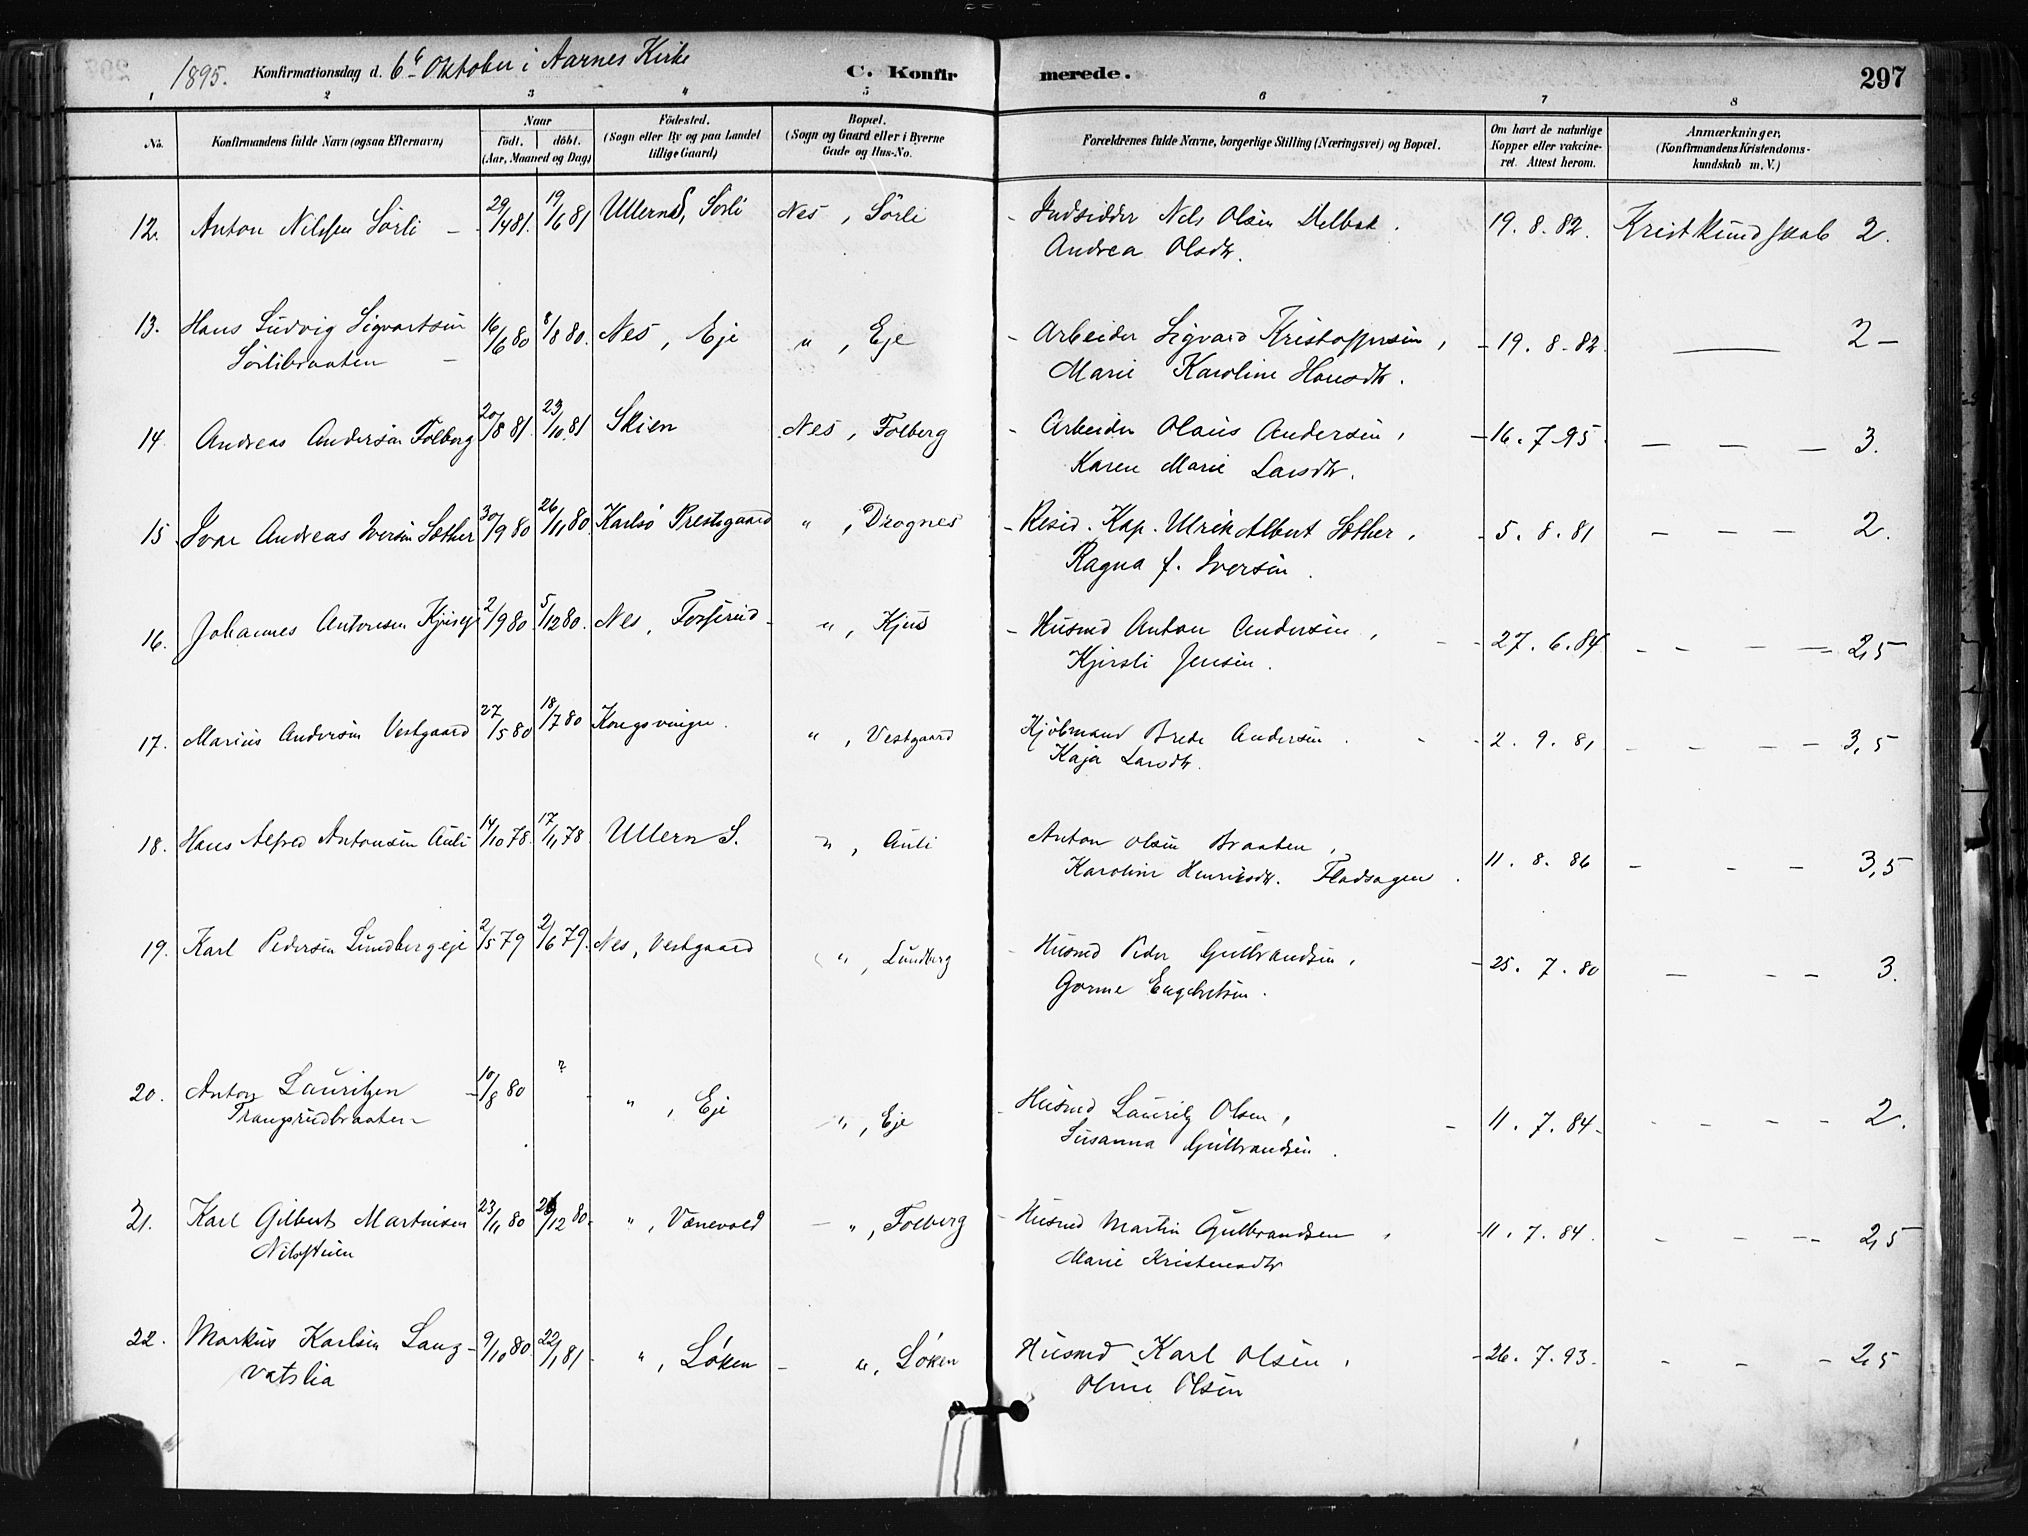 1895. Konfirmationsdag d. 6te Oktober i Aarnes Kirke C. Konfirmerede. 297
1 2 3 4 5 6 7 8
No. Konfirmandens fulde Navn (ogsaa Efternavn) Naar født. døbt. (Aar, Maaned og Dag) Födested. (Sogn eller By og paa Landet tillige Gaard) Bopæl. (Sogn og Gaard eller i Byerne Gade og Hus-No. Forældrenes fulde Navne, borgerlige Stilling (Næringsvei) og Bopæl. Om havt de naturlige Kopper eller vakcineret. Attest herom. Anmærkninger. (Konfirmandens Kristendomskundskab m. V.)
12. Anton Nilssen Sörli – 29/4 81. 19/6 81 Ullern S, Sörli Nes, Sörli Indsidder Nils Olsen Melbak. 19. 8. 82. Krist kundskab 2.
Andrea Olsdtr.
13. Hans Ludvig Sigvartsen 16/6 80 8/8 80. Nes, Eje " , Eje - Arbeider Sigvard Kristoffersen, - 19. 8. 82. — 2 –
Sörlibraaten – Marie Karoline Hansdtr.
14. Andreas Andersen Folberg 20/8 81 23/10 81 Skien Nes, Folberg - Arbeider Olaus Andersen, - 16. 7. 95. — — — 3.
Karen Marie Larsdtr.
15. Ivar Andreas Iversen Sæther 30/9 80 26/11 80 Karlsö Prestegaard " , Drognes - Resid. Kap. Ulrik Albert Sæther, - 5. 8. 81 — — — 2.
Ragna f. Iversen.
16. Johannes Antonsen Kjuseje 2/9 80 5/12 80. Nes, Forserud - " , Kjus - Husmd Anton Andersen, - 27. 6. 84 - - - - 2,5
Kjersti Jensen.
17. Marius Andersen Vestgaard 27/5 80 18/7 80 Kongsvinger. " , Vestgaard Kjöbmand Brede Andersen. - 2. 9. 81 - - - - 3,5
Kaja Larsdtr.
18. Hans Alfred Antonsen Auli 14/10 78. 17/11 78 Ullern S. " , Auli Anton Olsen Braaten, 11. 8. 86 - - - 3,5
Karoline Henriksdtr. Fladsagen.
19. Karl Pedersen Lundbergeje 2/5 79 2/6 79. Nes, Vestgaard " , Lundberg - Husmd Peder Gulbrandsen, - 25. 7. 80 - - - 3.
Gorme Engebretsen.
20. Anton Lauritzen 10/8 80 ? " , Eje " , Eje - Husmd Lauritz Olsen, - 11. 7. 84 - - - - - 2.
Trangsrudbraaten - Susanna Gulbrandsen.
21. Karl Gilbert Martinsen 23/11 80 26/12 80. " , Vænevold - " , Folberg - Husmd Martin Gulbrandsen, - 11. 7. 84. - - - - 2,5
Nilsstuen Marie Kristensdtr
22. Markus Karlsen Lang- 9/10 80. 22/1 81 " , Löken - " , Löken Husmd Karl Olsen, - 26. 7. 93. - - - 2,5
vatslia Oline Olsen